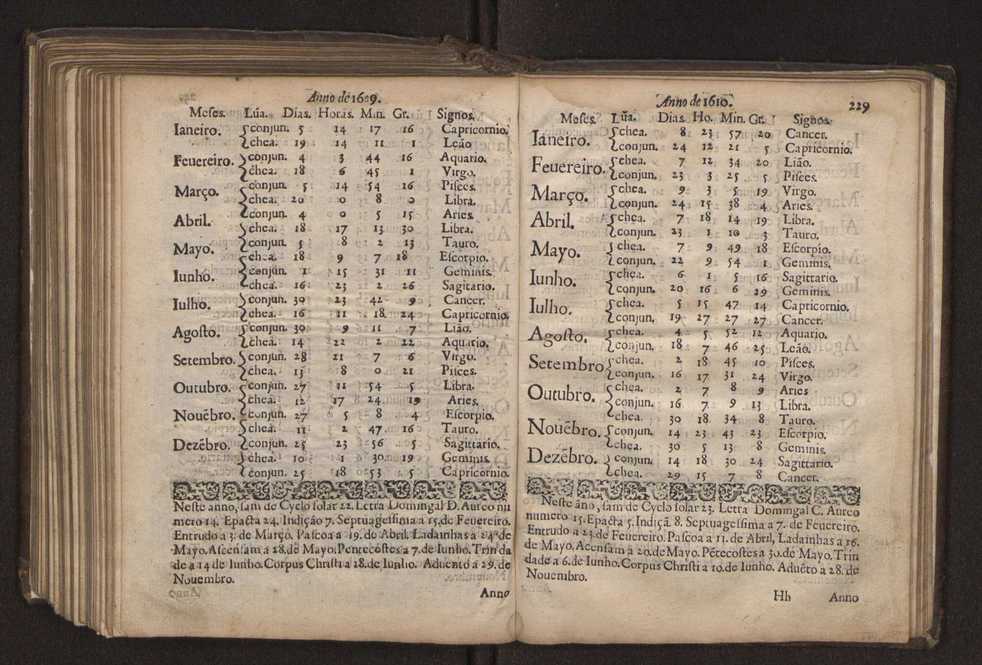 Anno de 1609.
Meses. Lũa. Dias. Horas. Min. Gr. Signos.
Ianeiro. conjun. 5 14 17 16 Capricornio.
chea. 19 14 11 1 Leão
Feuereiro. conjun. 4 3 44 16 Aquario.
chea. 18 6 45 1 Virgo.
Março. conjun. 5 14 54 16 Pisces.
chea. 20 0 8 0 Libra.
Abril. conjun. 4 0 5 15 Aries.
chea. 18 17 13 30 Libra.
Mayo. conjun. 5 8 2 13 Tauro.
chea. 18 9 7 18 Escorpio.
Iunho. conjun. 1 15 31 11 Geminis.
chea. 16 23 2 26 Sagitario.
Iulho. conjun. 30 23 42 9 Cancer.
chea. 16 11 18 24 Capricornio.
Agosto. conjun. 30 9 11 7 Lião.
chea. 14 22 2 22 Aquario.
Setembro. conjun. 28 21 7 6 Virgo.
chea. 13 8 0 21 Pisces.
Outubro. conjun. 27 11 54 5 Libra.
chea. 12 17 24 19 Aries.
Nouẽbro. conjun. 27 5 8 4 Escorpio.
chea. 11 2 47 16 Tauro.
Dezẽbro. conjun. 25 23 56 5 Sagittario.
chea. 10 1 30 19 Geminis.
conjun. 25 18 53 5 Capricornio.
Neste anno, sam de Cyclo solar 22. Letra Domingal D. Aureo nu
mero 14. Epacta 24. Indição 7. Septuagessima a 15. de Feuereiro.
Entrudo a 3. de Março. Pascoa a 19. de Abril. Ladainhas a 24. de
Mayo. Ascensam a 28. de Mayo. Pentecostes a 7. de Iunho. Trinda
de a 14 de Iunho. Corpus Christi a 18. de Iunho. Aduento a 29. de
Nouembro.
Anno
Anno de 1610. 229
Meses. Lũa. Dias. Ho. Min. Gr. Signos.
Ianeiro. chea. 8 23 57 20 Cancer.
conjun. 24 12 21 5 Capricornio.
Feuereiro. chea. 7 12 34 20 Lião.
conjun. 23 3 25 5 Pisces.
Março. chea. 9 3 5 19 Virgo.
conjun. 24 15 38 4 Aries.
Abril. chea. 7 18 14 19 Libra.
conjun. 23 1 10 3 Tauro.
Mayo. chea. 7 9 49 18 Escorpio.
conjun. 22 9 54 1 Geminis.
Iunho. chea. 6 1 5 16 Sagittario.
conjun. 20 16 6 29 Geminis.
Iulho. chea. 5 15 47 14 Capricornio.
conjun. 19 27 27 27 Cancer.
Agosto. chea. 4 5 52 12 Aquario.
conjun. 18 7 46 25 Leão.
Setembro chea. 2 18 45 10 Pisces.
conjun. 16 17 31 24 Virgo.
Outubro. chea. 2 7 8 9 Aries
conjun. 16 7 9 13 Libra.
chea. 30 18 34 8 Tauro.
Nouẽbro. conjun. 14 23 43 23 Escorpio.
chea. 30 5 13 8 Geminis.
Dezẽbro. conjun. 14 18 30 24 Sagittario.
chea. 29 15 7 8 Cancer.
Neste ano, sam de Cyclo solar 23. Letra Domingal C. Aureo
numero 15. Epacta 5. Indiçã 8. Septuagessima a 7. de Feuereiro.
Entrudo a 23. de Feuereiro. Pascoa a 11. de Abril, Ladainhas a 16.
de Mayo. Acensam a 20. de Mayo. Pẽtecostes a 30. de Mayo. Trin
dade a 6. de Iunho. Corpus Christi a 10. de Iunho. Aduẽto a 28. de
Nouembro.
Hh Anno